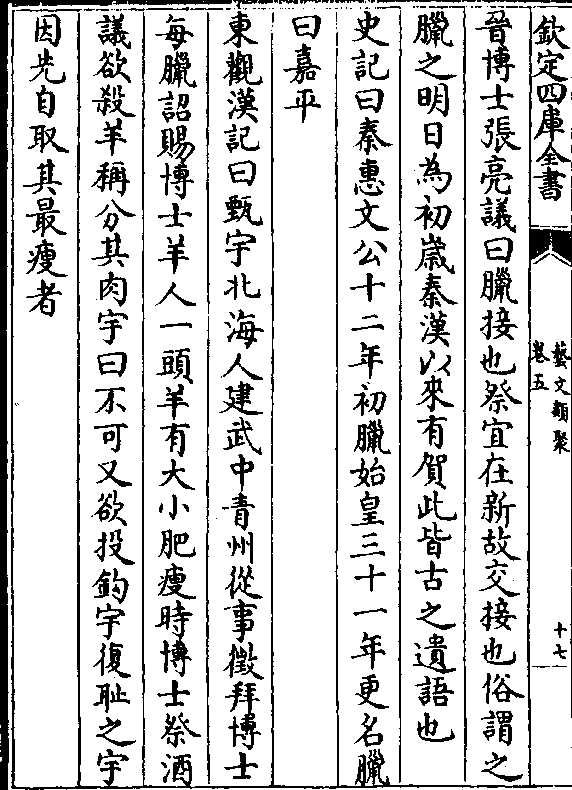 欽定四庫全書
藝文類聚
卷五
十七
晉博士張亮議曰臘接也祭宜在新故交接也俗謂之
臘之明日為初嵗秦漢以來有賀此皆古之遺語也
史記曰秦惠文公十二年初臘始皇三十一年更名臘
曰嘉平
東觀漢記曰甄宇北海人建武中青州從事徵拜博士
每臘詔賜博士羊人一頭羊有大小肥瘦時博士祭酒
議欲殺羊稱分其肉宇曰不可又欲投鈞宇復恥之宇
因先自取其最瘦者